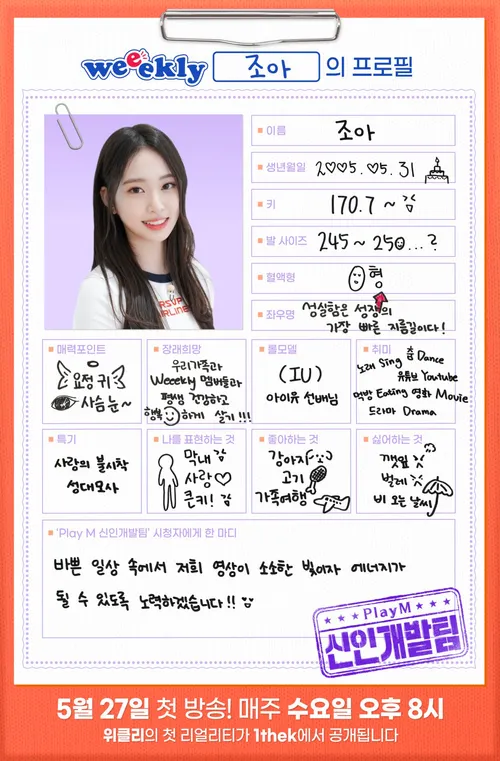 weeekly 조아 의 프로필
이름 조아
생년월일 2005.05.31
키 170.7 ~ 감
발 사이즈 245 ~ 250...?
혈액형 O형
좌우명 성실함은 성장의
가장 빠른 지름길이다!
매력포인트
요정 귀
사슴 눈~
장래희망
우리가족과
Weeekly 멤버들과
평생 건강하고
행복하게 살기!!!
롤모델
(IU)
아이유 선배님
취미
노래 Sing 춤 Dance
유튜브 Youtube
먹방 Eating 영화 Movie
드라마 Drama
특기
사랑의 불시착
성대모사
나를 표현하는 것
막내
사랑♡
큰키!
좋아하는 것
강아지
고기
가족여행
싫어하는 것
깻잎
벌레
비 오는 날씨
'Play M 신인개발팀' 시청자에게 한 마디
바쁜 일상 속에서 저희 영상이 소소한 빛이자 에너지가
될 수 있도록 노력하겠습니다!!
★★★ PlayM ★★★
신인개발팀
5월 27일 첫 방송! 매주 수요일 오후 8시
위클리의 첫 리얼리티가 1thek에서 공개됩니다